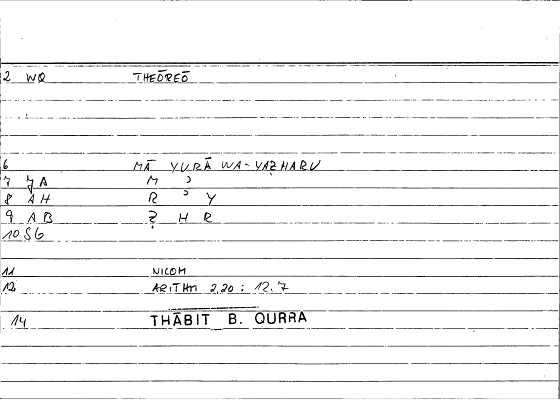 2 WQ THEŌREŌ
6 MĀ YURĀ WA-YAẒHARU
7 JA M ʾ
8 AH R ʾ Y
9 AB Ẓ H R
10 SG
11 NICOM
12 ARITHM 2.20 : 12.7
14 THĀBIT B. QURRA